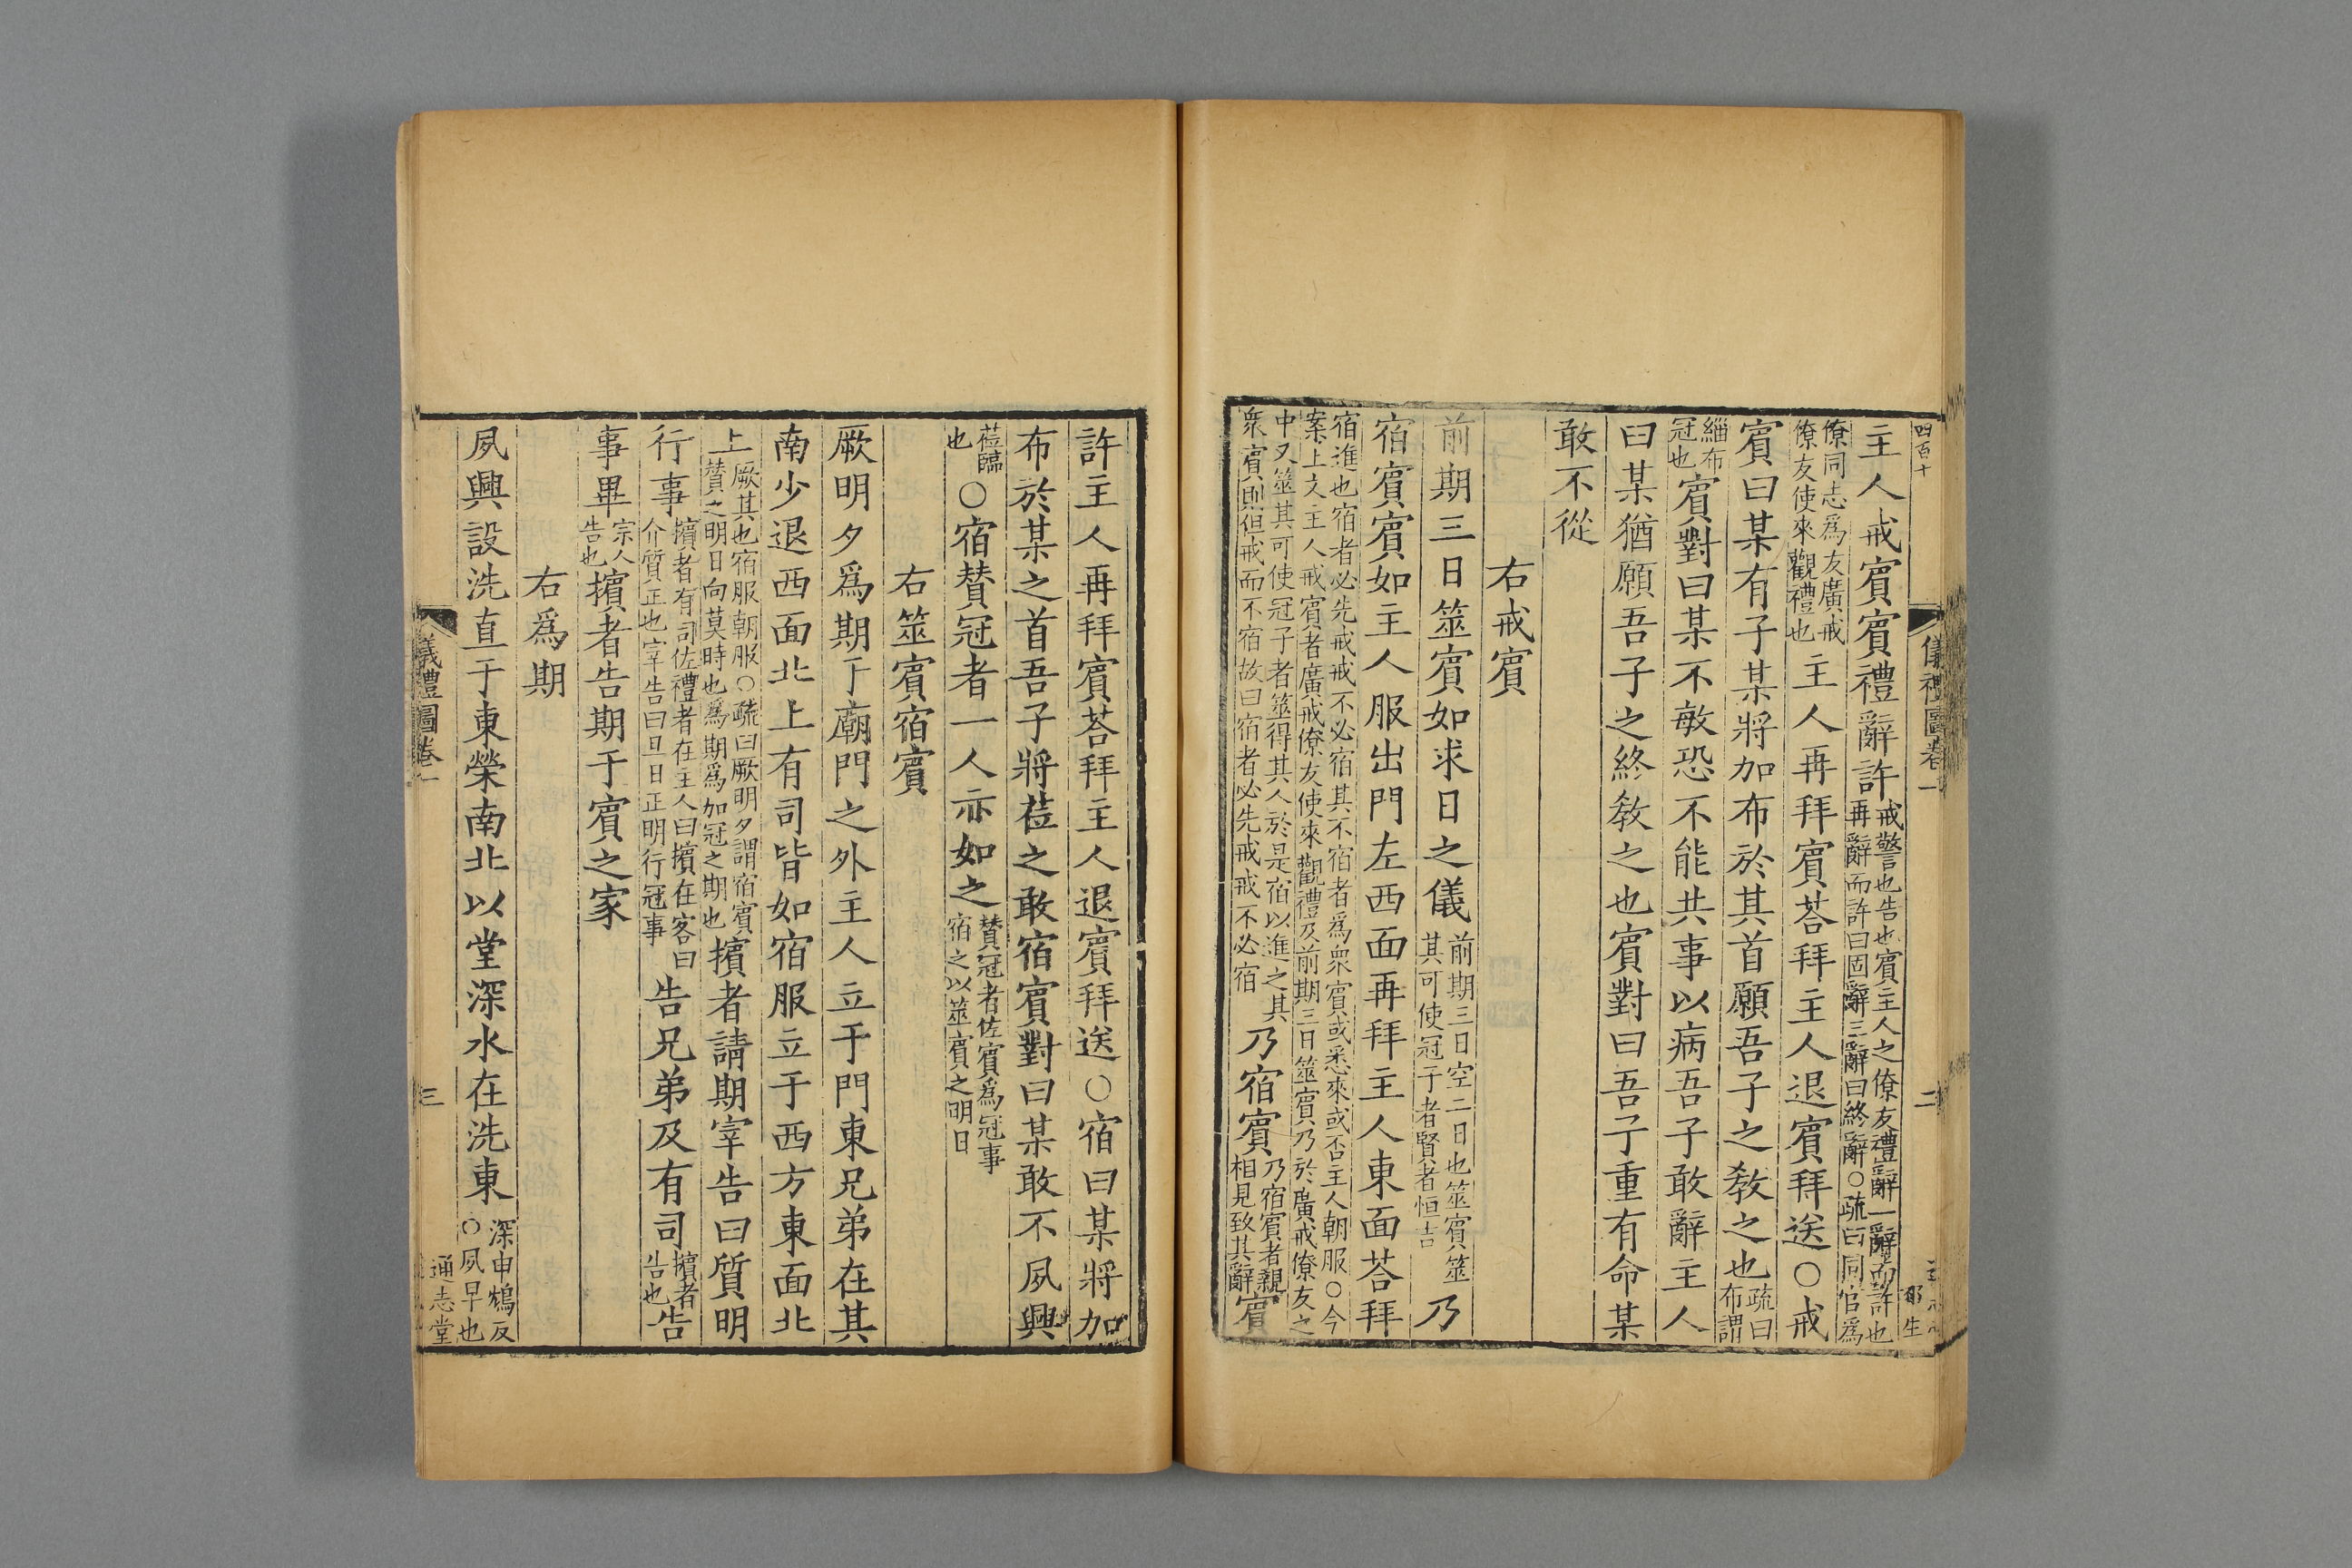 四百十
儀禮圖卷一
二
生
主人戒賓賓禮辭許戒警也告也賓主人之僚友禮辭一辭而許也再辭而許曰固辭三辭曰終辭○疏曰同官爲
僚同志爲友廣戒僚友使來觀禮也主人再拜賓荅拜主人退賓拜送○戒
賓曰某有子某將加布於其首願吾子之敎之也疏曰布謂
緇布冠也賓對曰某不敏恐不能共事以病吾子敢辭主人
曰某猶願吾子之終敎之也賓對曰吾子重有命某
敢不從
右戒賓
前期三日筮賓如求日之儀前期三日空二日也筮賓筮其可使冠子者賢者恒吉乃
宿賓賓如主人服出門左西面再拜主人東面荅拜
宿進也宿者必先戒戒不必宿其不宿者爲衆賓或悉來或否主人朝服○今案上文主人戒賓者廣戒僚友使來觀禮及前期三日筮賓乃於廣戒僚友之
中又筮其可使冠子者筮得其人於是宿以進之其衆賓則但戒而不宿故曰宿者必先戒戒不必宿乃宿賓乃宿賓者親相見致其辭賓
許主人再拜賓荅拜主人退賓拜送○宿曰某將加
布於某之首吾子將莅之敢宿賓對曰某敢不夙興
莅臨也○宿贊冠者一人亦如之贊冠者佐賓爲冠事宿之以筮賓之明日
右筮賓宿賓
厥明夕爲期于廟門之外主人立于門東兄弟在其
南少退西面北上有司皆如宿服立于西方東面北
上厥其也宿服朝服○疏曰厥明夕謂宿賓贊之明日向莫時也爲期爲加冠之期也擯者請期宰告曰質明
行事擯者有司佐禮者在主人曰擯在客曰介質正也宰告曰旦日正明行冠事告兄弟及有司擯者告也告
事畢宗人告也擯者告期于賓之家
右爲期
夙興設洗直于東榮南北以堂深水在洗東深申鴆反○夙早也
儀禮圖卷一
三
通志堂